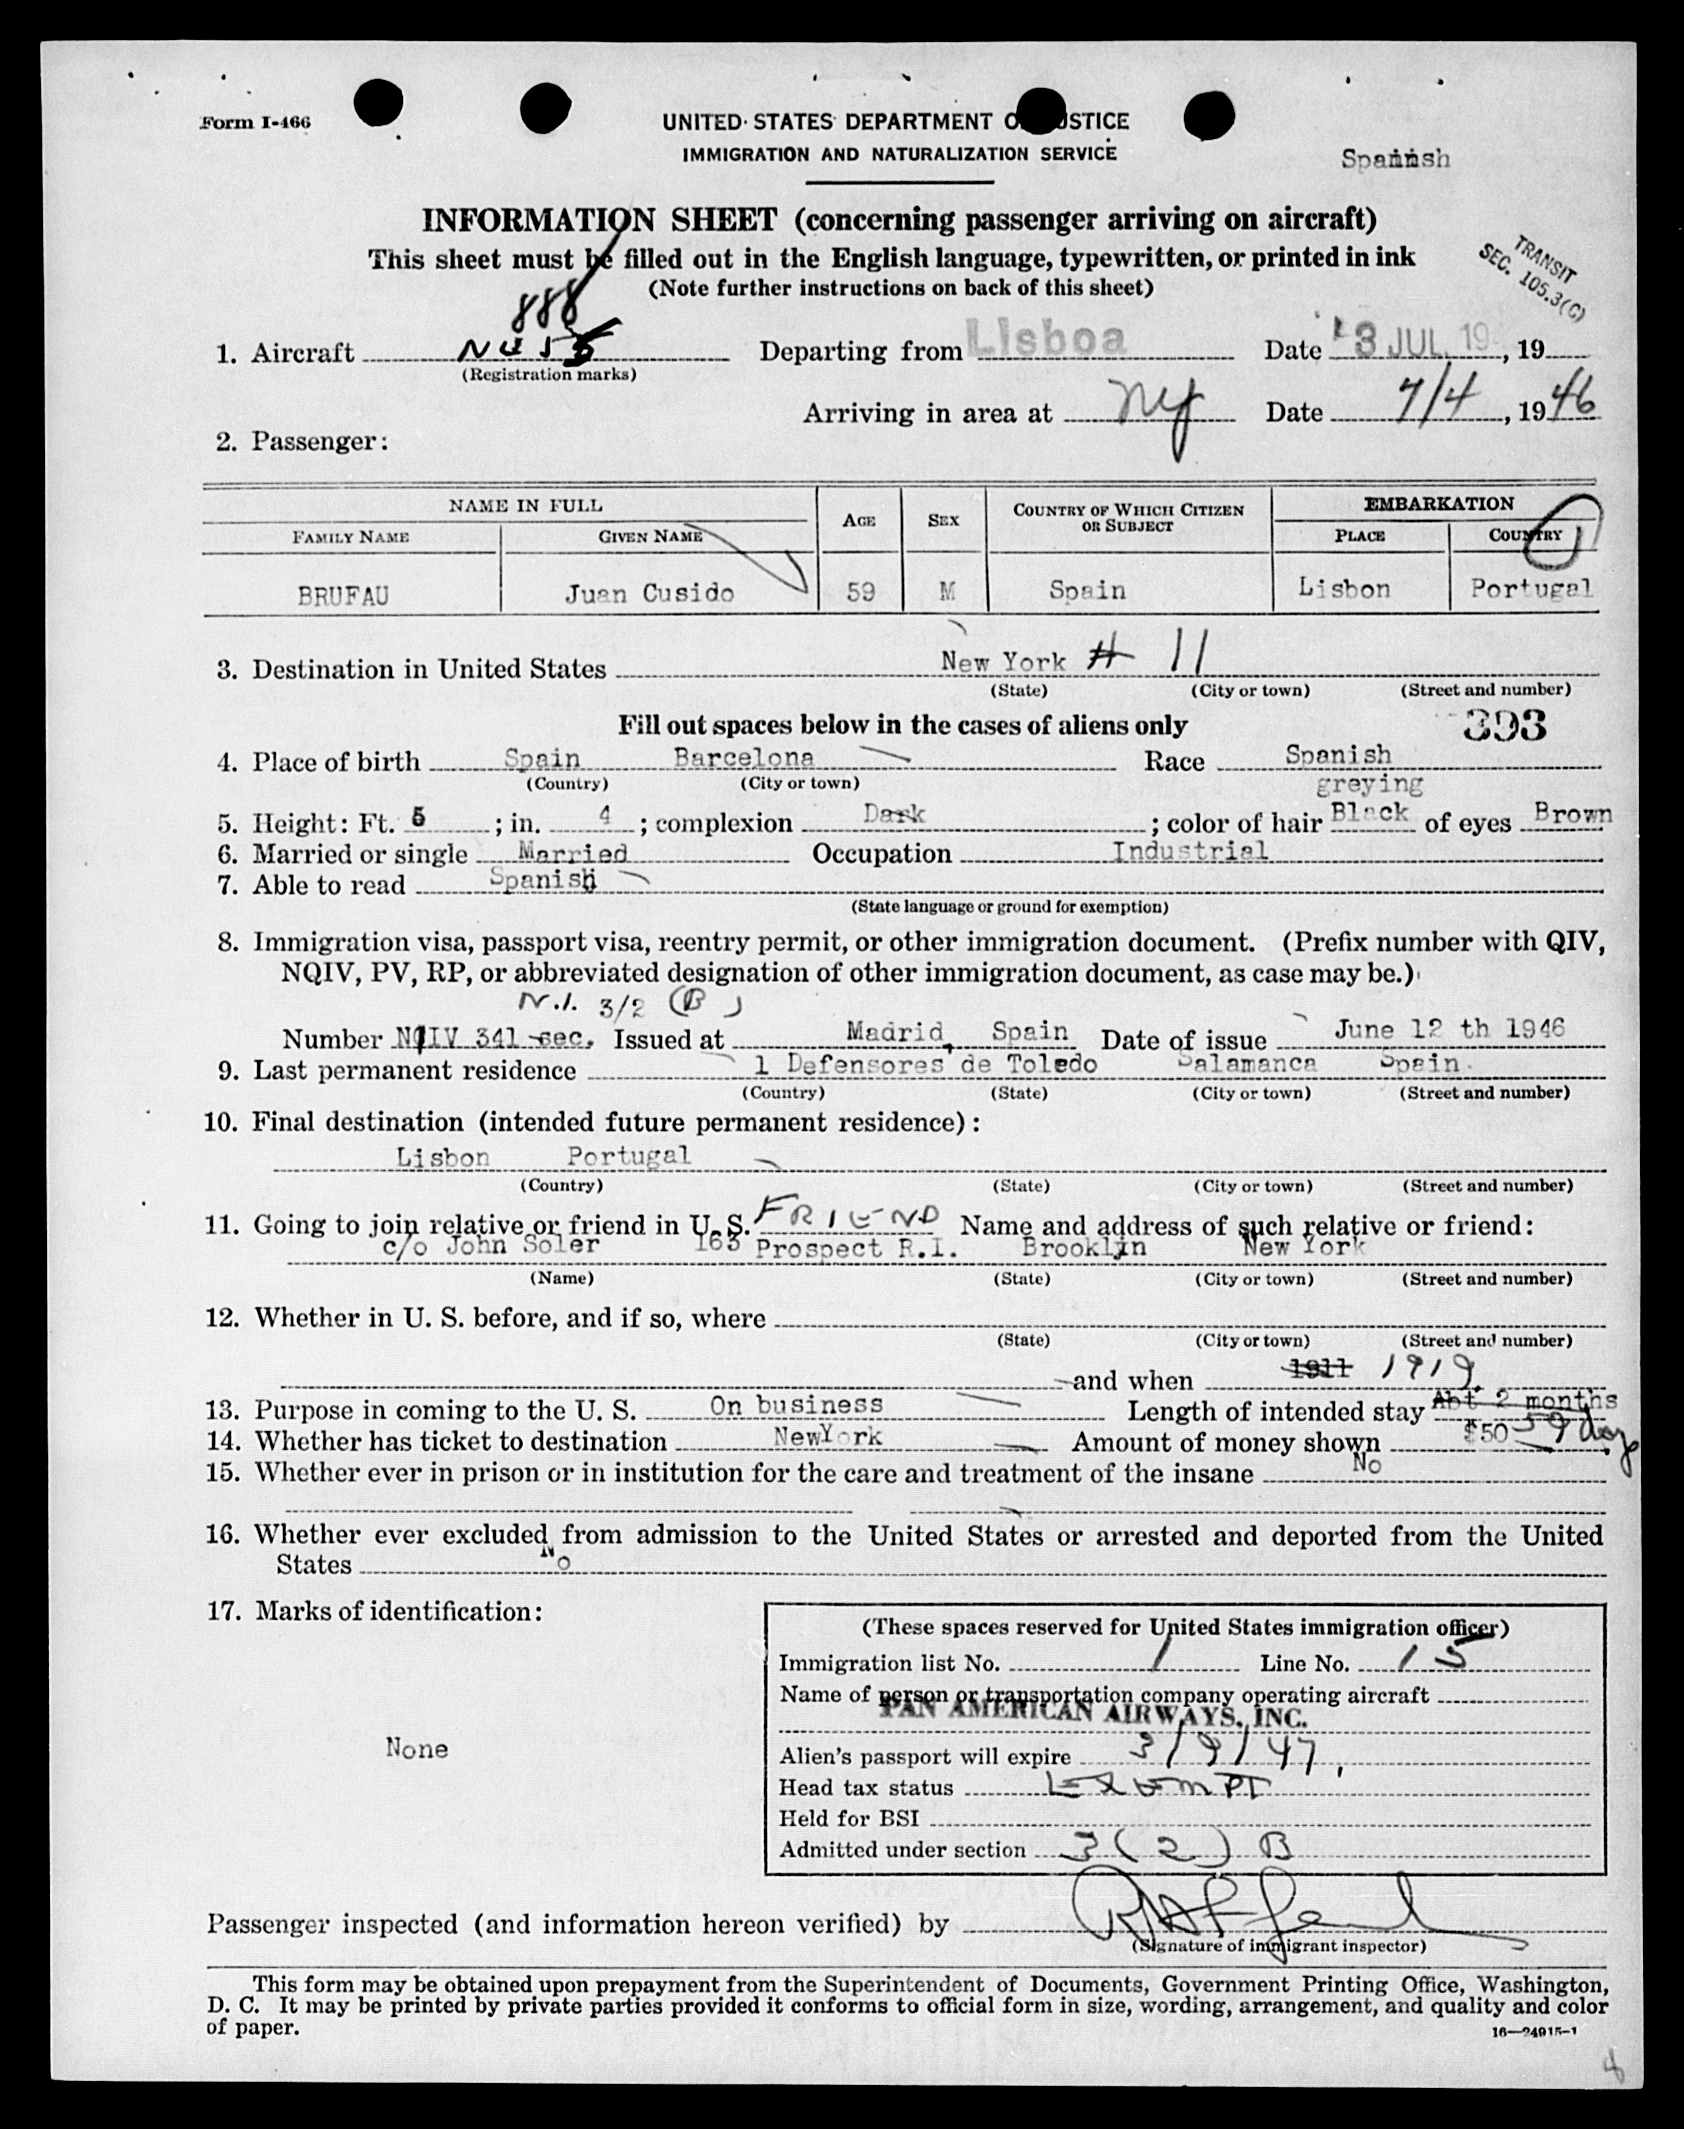 Form I-466
UNITED STATES DEPARTMENT OF JUSTICE
IMMIGRATION AND NATURALIZATION SERVICE
Spannsh
INFORMATION SHEET (concerning passenger arriving on aircraft)
This sheet must be filled out in the English language, typewritten, or printed in ink
(Note further instructions on back of this sheet)
TRANSIT
SEC. 105.3(C)
888
1. Aircraft Departing from Lisboa Date 3 JUL. 19 , 19
(Registration marks)
Arriving in area at NY Date 7/4, 1946
2. Passenger:
NAME IN FULL AGE SEX COUNTRY OF WHICH CITIZEN OR SUBJECT EMBARKATION
FAMILY NAME GIVEN NAME PLACE COUNTRY
BRUFAU Juan Cusido 59 M Spain Lisbon Portugal
3. Destination in United States New York # 11
(State) (City or town) (Street and number)
Fill out spaces below in the cases of aliens only 393
4. Place of birth Spain Barcelona Race Spanish
(Country) (City or town) greying
5. Height: Ft. 5 ; in. 4 ; complexion Dark ; color of hair Black of eyes Brown
6. Married or single Married Occupation Industrial
7. Able to read Spanish
(State language or ground for exemption)
8. Immigration visa, passport visa, reentry permit, or other immigration document. (Prefix number with QIV,
NQIV, PV, RP, or abbreviated designation of other immigration document, as case may be.)
N.I. 3/2 (B)
Number NQIV 341 sec. Issued at Madrid, Spain Date of issue June 12 th 1946
9. Last permanent residence 1 Defensores de Toledo Salamanca Spain.
(Country) (State) (City or town) (Street and number)
10. Final destination (intended future permanent residence):
Lisbon Portugal
(Country) (State) (City or town) (Street and number)
11. Going to join relative or friend in U. S. FRIEND Name and address of such relative or friend:
c/o John Soler 163 Prospect R.I. Brooklin New York
(Name) (State) (City or town) (Street and number)
12. Whether in U. S. before, and if so, where
(State) (City or town) (Street and number)
and when 1911 1919.
13. Purpose in coming to the U. S. On business Length of intended stay Abt 2 months
14. Whether has ticket to destination NewYork Amount of money shown $50 59 days
15. Whether ever in prison or in institution for the care and treatment of the insane No
16. Whether ever excluded from admission to the United States or arrested and deported from the United
States No
17. Marks of identification:
None
(These spaces reserved for United States immigration officer)
Immigration list No. 1 Line No. 15
Name of person or transportation company operating aircraft
PAN AMERICAN AIRWAYS, INC.
Alien's passport will expire 3/9/47
Head tax status EXEMPT
Held for BSI
Admitted under section 3(2)B
Passenger inspected (and information hereon verified) by
(Signature of immigrant inspector)
This form may be obtained upon prepayment from the Superintendent of Documents, Government Printing Office, Washington,
D. C. It may be printed by private parties provided it conforms to official form in size, wording, arrangement, and quality and color
of paper.
16—24915-1